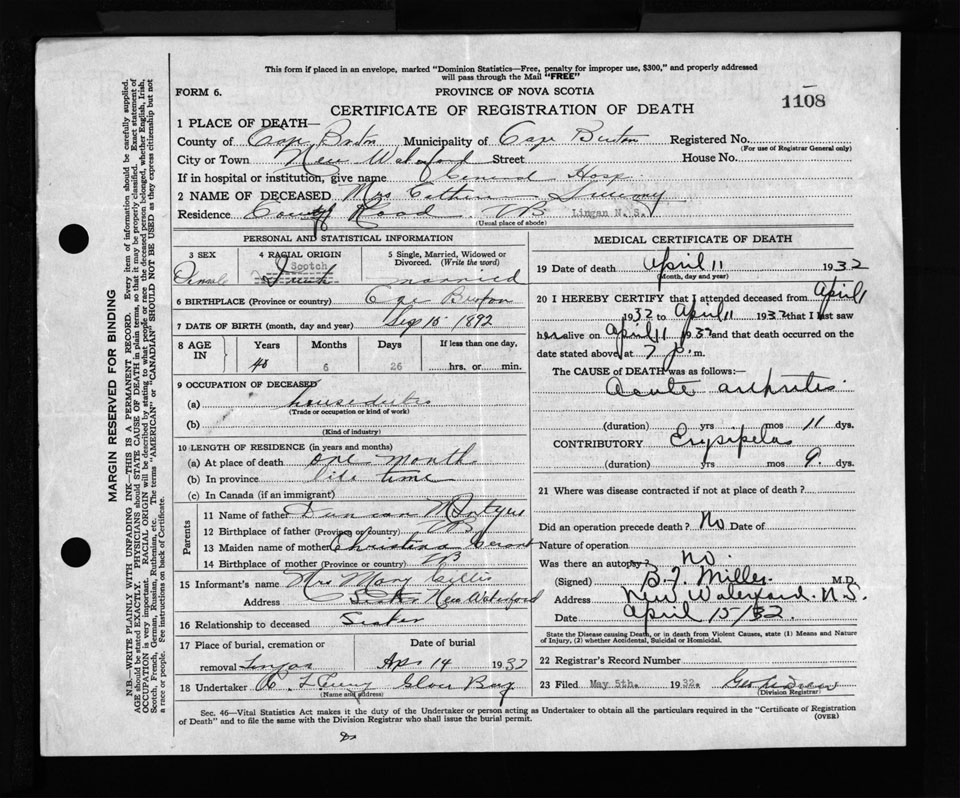 This form if placed in an envelope, marked "Dominion Statistics—Free, penalty for improper use, $300," and properly addressed
will pass through the Mail "FREE"
FORM 6.
PROVINCE OF NOVA SCOTIA
CERTIFICATE OF REGISTRATION OF DEATH
1108
1 PLACE OF DEATH—
County of Cape Breton Municipality of Cape Breton Registered No.
(For use of Registrar General only)
City or Town New Waterford Street House No.
If in hospital or institution, give name General Hosp.
2 NAME OF DECEASED Mrs
Residence County Road CB Lingan N. S.
(Usual place of abode)
PERSONAL AND STATISTICAL INFORMATION
3 SEX 4 RACIAL ORIGIN 5 Single, Married, Widowed or
Divorced. (Write the word)
Female Scotch married
6 BIRTHPLACE (Province or country) Cape Breton
7 DATE OF BIRTH (month, day and year) Sep 15 1892
8 AGE IN Years Months Days If less than one day,
6 26 hrs. or min.
9 OCCUPATION OF DECEASED
(a) house duties
(Trade or occupation or kind of work)
(b)
(Kind of industry)
10 LENGTH OF RESIDENCE (in years and months)
(a) At place of death one month
(b) In province life time
(c) In Canada (if an immigrant)
Parents
11 Name of father Duncan McIntyre
12 Birthplace of father (Province or country) CB
13 Maiden name of mother Christina
14 Birthplace of mother (Province or country) CB
15 Informant's name Mrs Mary Gillis
Address New Waterford
16 Relationship to deceased Sister
17 Place of burial, cremation or Date of burial
removal Lingan Apr 14 1932
18 Undertaker Glace Bay
(Name and address)
MEDICAL CERTIFICATE OF DEATH
19 Date of death April 11 1932
(Month, day and year)
20 I HEREBY CERTIFY that I attended deceased from April 1
1932 to April 11 1932 that I last saw
her alive on April 11 1932 and that death occurred on the
date stated above at 7 p. m.
The CAUSE of DEATH was as follows:—
Acute
(duration) yrs mos 11 dys.
CONTRIBUTORY Erysipelas
(duration) yrs mos 9 dys.
21 Where was disease contracted if not at place of death?
Did an operation precede death? No Date of
Nature of operation
Was there an autopsy? no.
(Signed) Miller M.D.
Address New Waterford. N.S.
Date April 15/32.
State the Disease causing Death, or in death from Violent Causes, state (1) Means and Nature
of Injury, (2) whether Accidental, Suicidal or Homicidal.
22 Registrar's Record Number
23 Filed May 5th. 1932.
(Division Registrar)
Sec. 46—Vital Statistics Act makes it the duty of the Undertaker or person acting as Undertaker to obtain all the particulars required in the "Certificate of Registration
of Death" and to file the same with the Division Registrar who shall issue the burial permit.
(OVER)
MARGIN RESERVED FOR BINDING
N.B.—WRITE PLAINLY WITH UNFADING INK—THIS IS A PERMANENT RECORD. Every item of information should be carefully supplied.
AGE should be stated EXACTLY. PHYSICIANS should STATE CAUSE OF DEATH in plain terms, so that it may be properly classified. Exact statement of
OCCUPATION is very important. RACIAL ORIGIN will be described by stating to what people or race the deceased person belonged, whether English, Irish,
Scotch, French, German, Russian, Ruthenian, etc. The terms "AMERICAN" or "CANADIAN" SHOULD NOT BE USED as they express citizenship but not
a race or people. See instructions on back of Certificate.